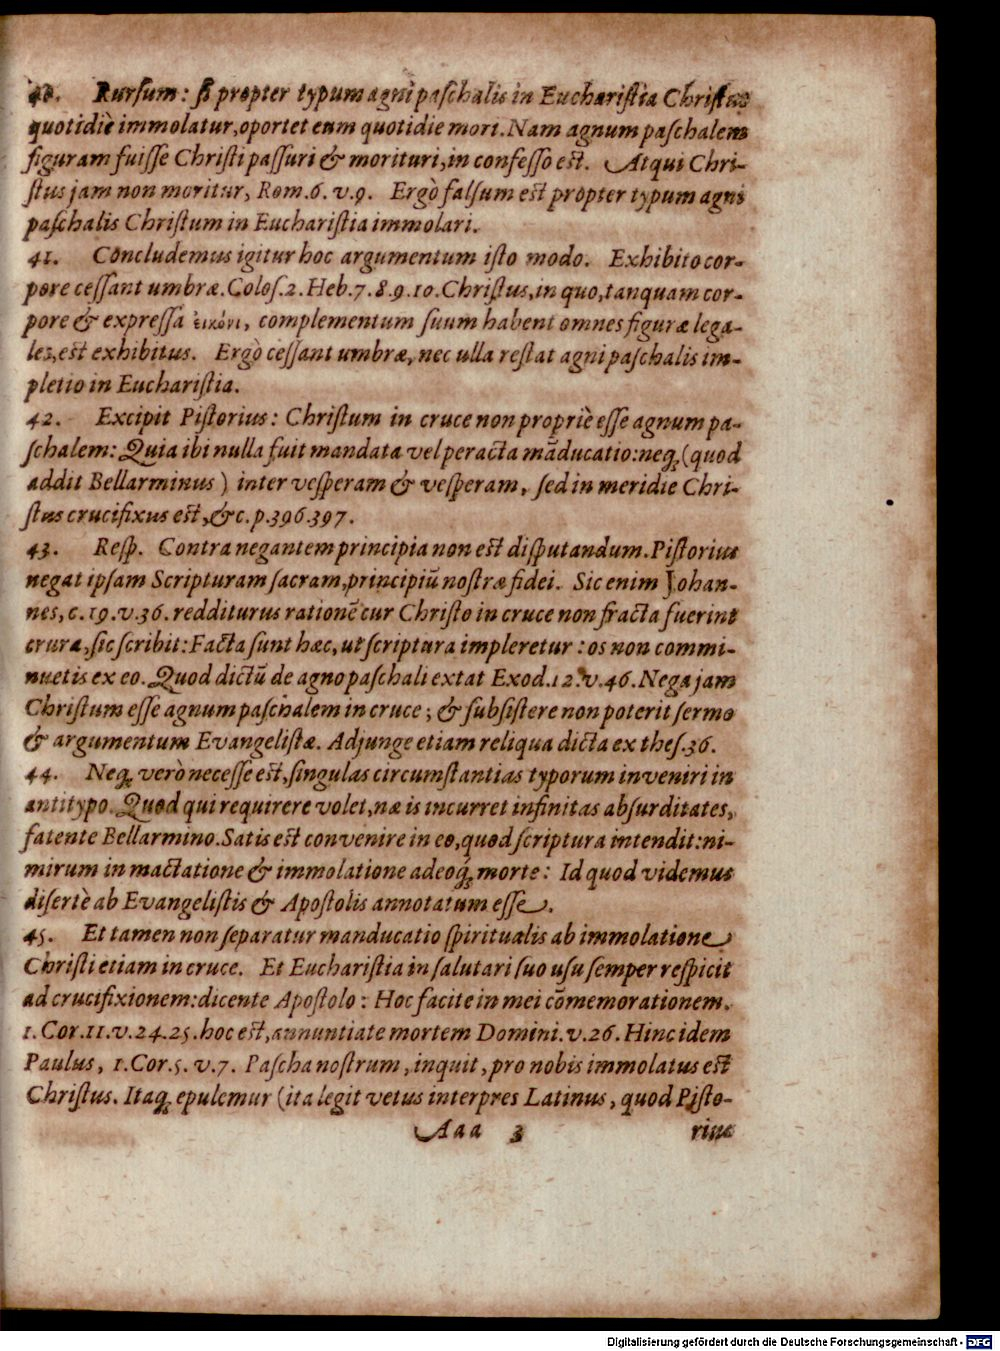 40. Rursum: si propter typum agni paschalis in Eucharistia Christus
quotidiè immolatur, oportet eum quotidie mori. Nam agnum paschalem
figuram fuisse Christi passuri & morituri, in confesso est. Atqui Chri-
stus jam non moritur, Rom. 6. v. 9. Ergò falsum est propter typum agni
paschalis Christum in Eucharistia immolari.
41. Concludemus igitur hoc argumentum isto modo. Exhibito cor-
pore cessant umbræ. Colos. 2. Heb. 7. 8. 9. 10. Christus, in quo, tanquam cor-
pore & expressa εἰκόνι, complementum suum habent omnes figuræ lega-
les, est exhibitus. Ergò cessant umbræ, nec ulla restat agni paschalis im-
pletio in Eucharistia.
42. Excipit Pistorius: Christum in cruce non propriè esse agnum pa-
schalem: Quia ibi nulla fuit mandata vel peracta māducatio: neq; (quod
addit Bellarminus) inter vesperam & vesperam, sed in meridie Chri-
stus crucifixus est, &c. p. 396. 397.
43. Resp. Contra negantem principia non est disputandum. Pistorius
negat ipsam Scripturam sacram, principiū nostræ fidei. Sic enim Johan-
nes, c. 19. v. 36. redditurus rationē cur Christo in cruce non fracta fuerint
crura, sic scribit: Facta sunt hæc, ut scriptura impleretur: os non commi-
nuetis ex eo. Quod dictū de agno paschali extat Exod. 12. v. 46. Nega jam
Christum esse agnum paschalem in cruce; & subsistere non poterit sermo
& argumentum Evangelistæ. Adjunge etiam reliqua dicta ex thes. 36.
44. Neq; verò necesse est, singulas circumstantias typorum inveniri in
antitypo. Quod qui requirere volet, næ is incurret infinitas absurditates,
fatente Bellarmino. Satis est convenire in eo, quod scriptura intendit: ni-
mirum in mactatione & immolatione adeoq; morte: Id quod videmus
disertè ab Evangelistis & Apostolis annotatum esse.
45. Et tamen non separatur manducatio spiritualis ab immolatione
Christi etiam in cruce. Et Eucharistia in salutari suo usu semper respicit
ad crucifixionem: dicente Apostolo: Hoc facite in mei cōmemorationem.
1. Cor. 11. v. 24. 25. hoc est, annuntiate mortem Domini. v. 26. Hinc idem
Paulus, 1. Cor. 5. v. 7. Pascha nostrum, inquit, pro nobis immolatus est
Christus. Itaq; epulemur (ita legit vetus interpres Latinus, quod Pisto-
Aaa 3 rius
Digitalisierung gefördert durch die Deutsche Forschungsgemeinschaft - DFG